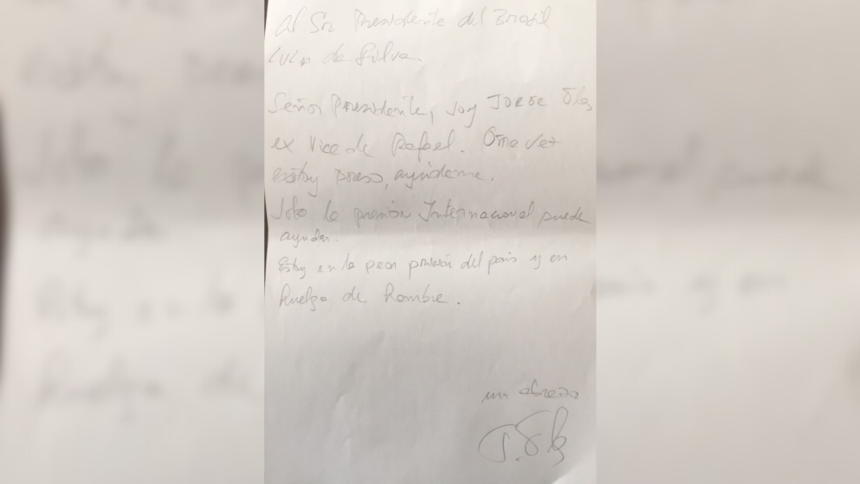 Al Sr. Presidente del Brasil
Lula da Silva.
Señor Presidente, soy Jorge Glas
ex Vice de Rafael. Otra vez
estoy preso, ayúdeme.
Solo la presión Internacional puede
ayudar.
Estoy en la peor prisión del país y en
huelga de hambre.
un abrazo
J. Glas